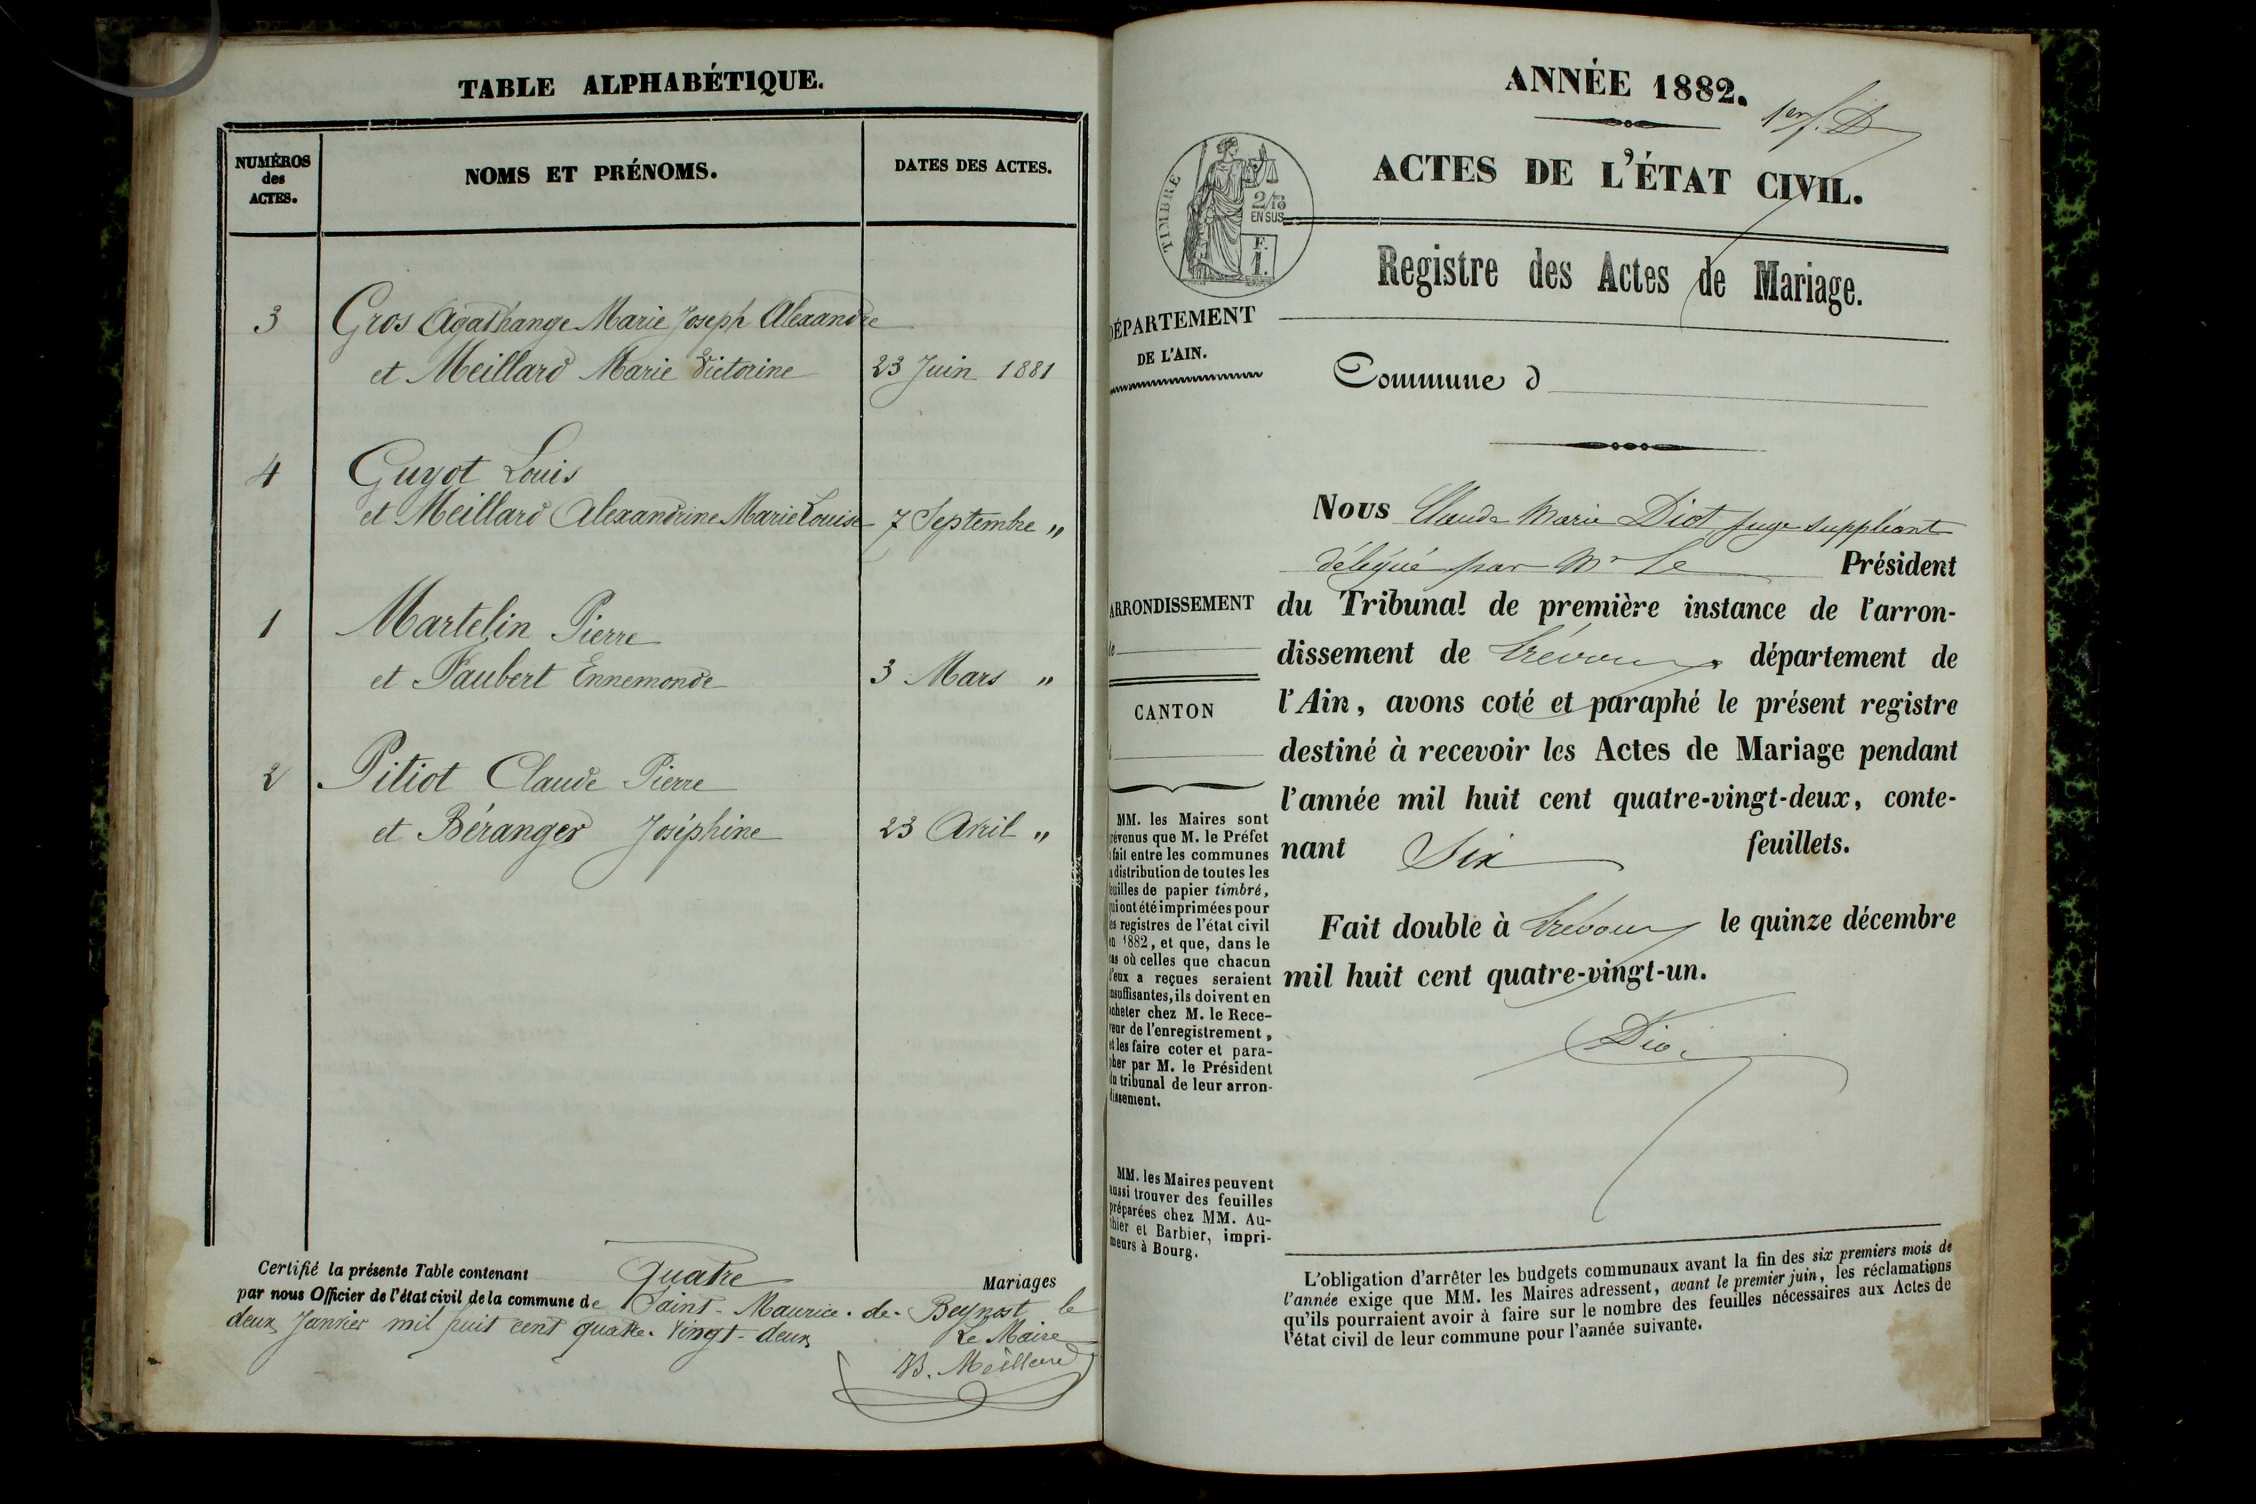 TABLE ALPHABÉTIQUE.
NUMÉROS
des
ACTES.
NOMS ET PRÉNOMS.
DATES DES ACTES.
3 Gros Agathange Marie Joseph Alexandre
et Meillard Marie Victorine 23 Juin 1881
4 Guyot Louis
et Meillard Alexandrine Marie Louise 7 Septembre "
1 Martelin Pierre
et Faubert Ennemonde 3 Mars "
2 Pitiot Claude Pierre
et Béranger Joséphine 23 Avril "
Certifié la présente Table contenant Quatre Mariages
par nous Officier de l'état civil de la commune de Saint-Maurice-de-Beynost le
deux Janvier mil huit cent quatre-vingt-deux
Le Maire
Meillard
ANNÉE 1882.
1er f.
ACTES DE L'ÉTAT CIVIL.
TIMBRE
2/10
EN SUS
F.
1.
Registre des Actes de Mariage.
DÉPARTEMENT
DE L'AIN.
Commune d
Nous Claude Marie Diot Juge suppléant
délégué par Mr Le Président
du Tribunal de première instance de l'arron-
dissement de Trévoux département de
l'Ain, avons coté et paraphé le présent registre
destiné à recevoir les Actes de Mariage pendant
l'année mil huit cent quatre-vingt-deux, conte-
nant Six feuillets.
Fait double à Trévoux le quinze décembre
mil huit cent quatre-vingt-un.
Diot
ARRONDISSEMENT
CANTON
MM. les Maires sont
prévenus que M. le Préfet
a fait entre les communes
la distribution de toutes les
feuilles de papier timbré,
qui ont été imprimées pour
les registres de l'état civil
en 1882, et que, dans le
cas où celles que chacun
d'eux a reçues seraient
insuffisantes, ils doivent en
acheter chez M. le Rece-
veur de l'enregistrement,
et les faire coter et para-
pher par M. le Président
du tribunal de leur arron-
dissement.
MM. les Maires peuvent
aussi trouver des feuilles
préparées chez MM. Au-
thier et Barbier, impri-
meurs à Bourg.
L'obligation d'arrêter les budgets communaux avant la fin des six premiers mois de
l'année exige que MM. les Maires adressent, avant le premier juin, les réclamations
qu'ils pourraient avoir à faire sur le nombre des feuilles nécessaires aux Actes de
l'état civil de leur commune pour l'année suivante.